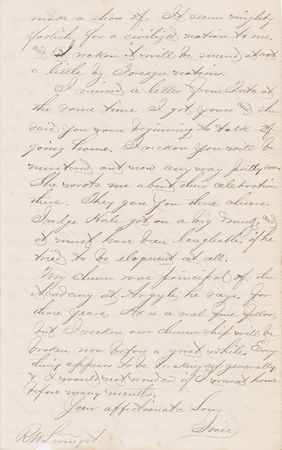 make a show of. It seems mighty
foolish for a civilized nation to me,
and I reckon it will be sneered at not
a little by foreign nations.
I received a letter from
the same time I got yours and she
said you were beginning to talk of
going home. I reckon you will be
mustered out now any way pretty soon.
She wrote me about their celebration
there. They gave you three cheers.
Judge Hale got on a big drunk, and
it must have been laughable if he
tried to be eloquent at all.
My chum was principal of the
Academy at Argyle, he says, for
three years. He is a real fine fellow,
but I reckon our chum ship will be
broken now before a great while. Every
thing appears to be breaking generally
& I would not wonder if I was at home
before many months.
Your affectionate Son,